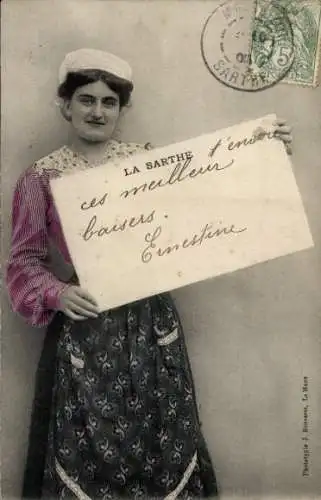 LA SARTHE
t'envoie
ces meilleur
baisers.
Ernestine
SARTHE
5
Phototypie J. Bouveret, Le Mans